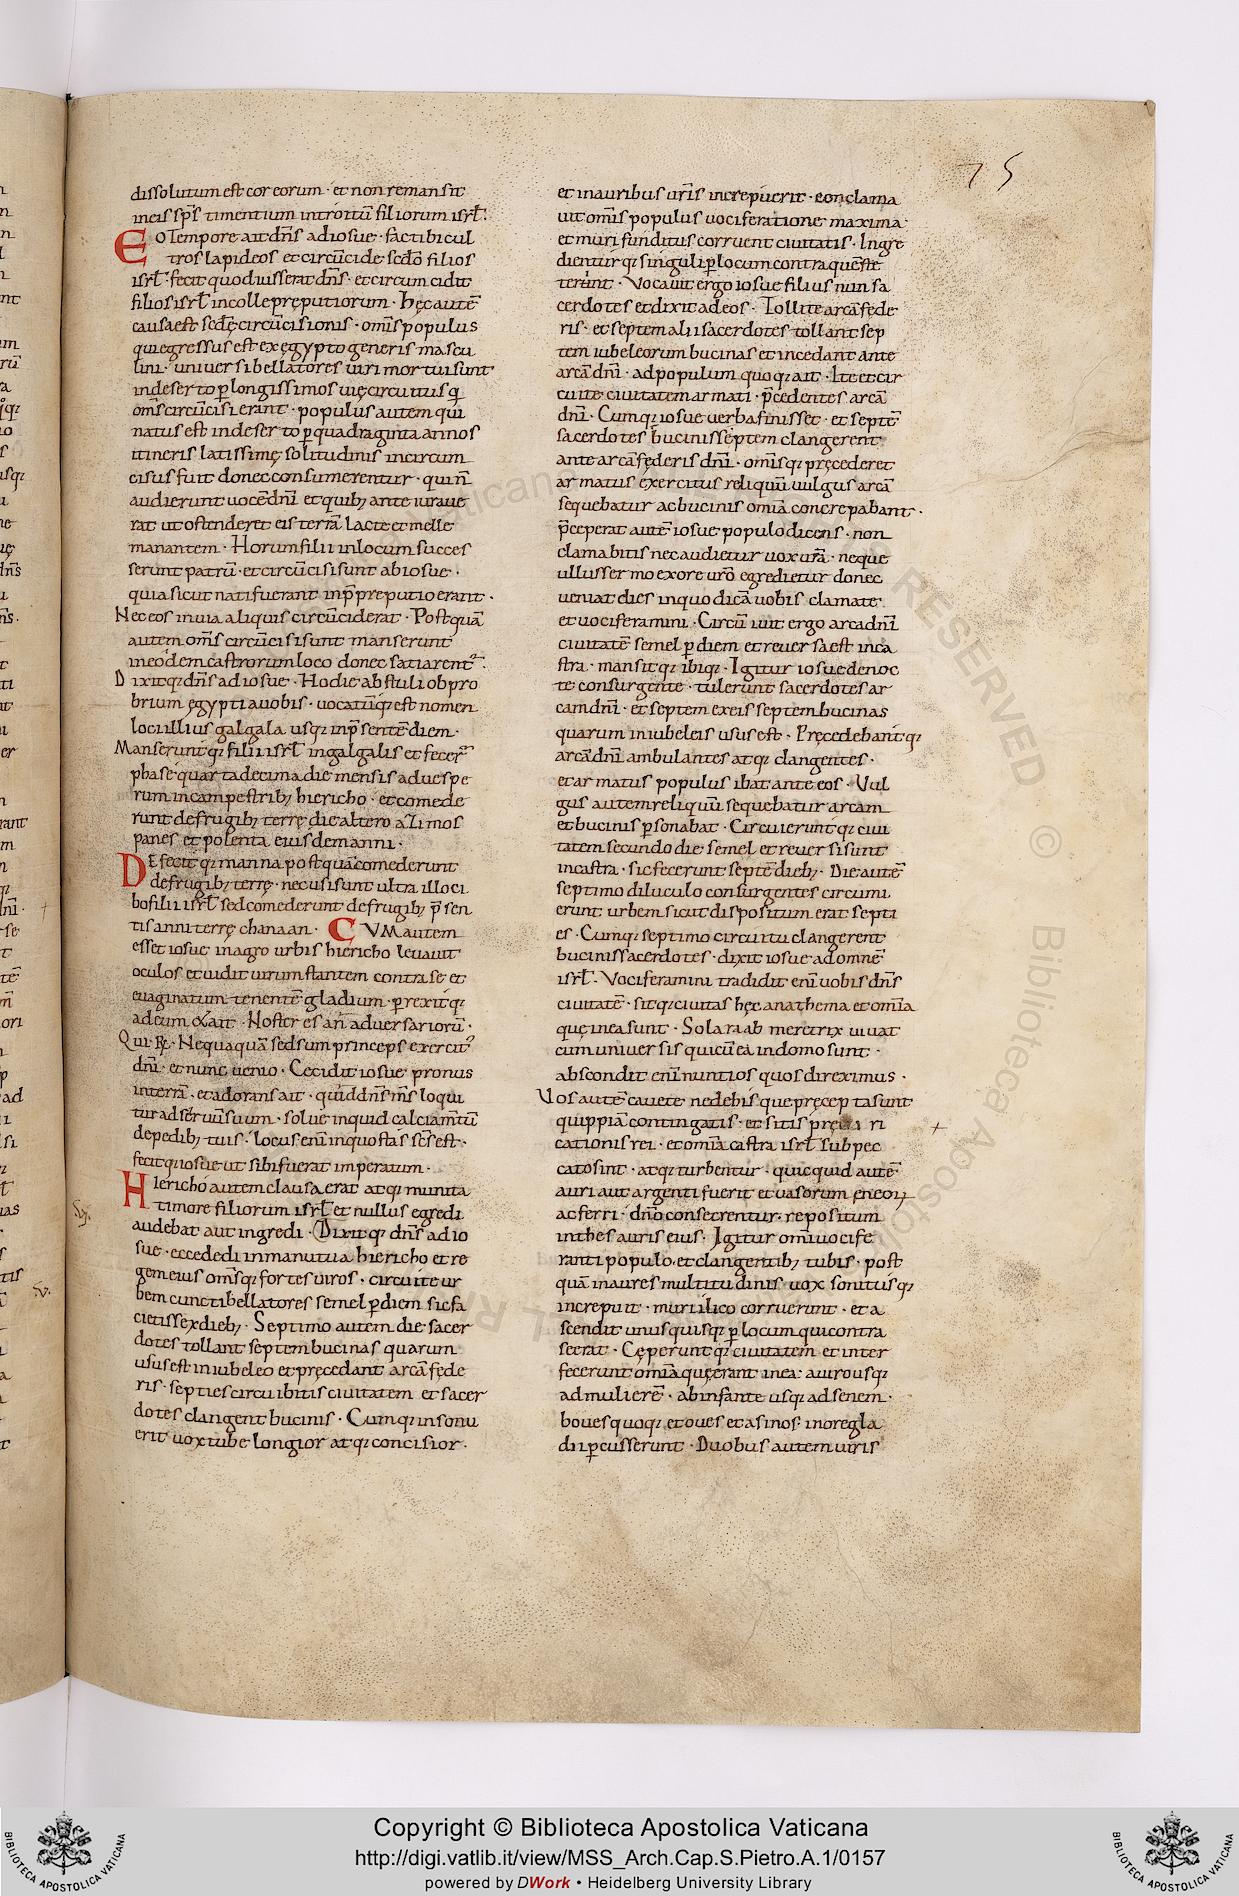 75
dissolutum est cor eorum · et non remansit
in eis sp̅s timentium introitū filiorum isrł·
EO Tempore ait dn̅s ad iosue · fac tibi cul
tros lapideos et circūcide scdō filios
isrł · fecit quod iusserat dn̅s · et circumcidit
filios isrł in colle pręputiorum · hęc autē
causa est scdę circūcisionis · omīs populus
qui egressus est ex ęgypto generis mascu
lini · universi bellatores viri mortui sunt
in deserto p̱ longissimos vię circuitus q̱
oms̄ circūcisi erant · populus autem qui
natus est in deserto p̱ quadraginta annos
itineris latissimę solitudinis incircum
cisus fuit donec consumerentur · qui n̄
audierunt vocē dn̄i et quib; ante iurave
rat ut ostenderet eis terrā lacte et melle
manantem · Horum filii in locum succes
serunt patrū · et circūcisi sunt ab iosue ·
quia sicut nati fuerant in p̄preputio erant ·
Nec eos in via aliquis circūciderat · Postquā
autem oms̄ circūcisi sunt manserunt
in eodem castrorum loco donec sanarent᷑ ·
Dixitq; dn̅s ad iosue · Hodie abstuli obpro
brium ęgypti a vobis · vocatūq; est nomen
loci illius galgala usq; in p̄sentē diem ·
Manseruntq; filii isrł in galgalis et fecer᷑
phase quartadecima die mensis ad vespe
rum in campestrib; hiericho · et comede
runt de frugib; terrę die altero azimos
panes et polenta eiusdem anni ·
DEfecitq; manna postquā comederunt
de frugib; terrę · nec usi sunt ultra illo ci
bo filii isrł sed comederunt de frugib; p̄sen
tis anni terrę chanaan · CVM autem
esset iosue in agro urbis hiericho levavit
oculos et vidit virum stantem contra se et
evaginatum tenentē gladium · perrexitq;
ad eum & ait · Noster es an̄ adversariorū ·
Qui R̵ · Nequaquā sed sum princeps exercit᷒
dn̄i · et nunc venio · Cecidit iosue pronus
in terrā · et adorans ait · quid dn̅s ms̄ loqui
tur ad servū suum · solve inquid calciam̄tū
de pedib; tuis · locus enī in quo stas scs̄ est ·
fecitq; iosue ut sibi fuerat imperatum ·
Hiericho autem clausa erat atq; munita
timore filiorum isrł et nullus egredi
audebat aut ingredi · Dixitq; dn̅s ad io
sue · ecce dedi in manu tua hiericho et re
gem eius oms̄q; fortes viros · circuite ur
bem cuncti bellatores semel p̱ diem sic fa
cietis sex dieb; · Septimo autem die sacer
dotes tollant septem bucinas quarum
usus est in iubeleo et pręcedant arcā fęde
ris · septies circuibitis civitatem et sacer
dotes clangent bucinis · Cumq; insonu
erit vox tube longior atq; concisior ·
et in auribus vr̄is increpuerit · conclama
vit omīs populus vociferatione maxima ·
et muri funditus corruent civitatis · Ingre
dienturq; singuli p̱ locum contra quē ste
terint · Vocavit ergo iosue filius nun sa
cerdotes et dixit ad eos · Tollite arcā fęde
ris · et septem alii sacerdotes tollant sep
tem iubeleorum bucinas et incedant ante
arcā dn̄i · ad populum quoq; ait · Ite et cir
cuite civitatem armati · p̄cedentes arcā
dn̄i · Cumq; iosue verba finisset · et septē
sacerdotes bucinis septem clangerent
ante arcā fęderis dn̄i · omisq; pręcederet
armatus exercitus reliquū vulgus arcā
sequebatur ac bucinis omīa concrepabant ·
p̄ceperat autē iosue populo dicens · non
clamabitis nec audietur vox vr̄a · neque
ullus sermo ex ore vr̄o egredietur donec
veniat dies in quo dicā vobis clamate
et vociferamini · Circūivit ergo arca dn̄i
civitatē semel p̱ diem et reversa est in ca
stra · mansitq; ibiq; · Igitur iosue de noc
te consurgente · tulerunt sacerdotes ar
cam dn̄i · et septem ex eis septem bucinas
quarum in iubeleis usus est · Pręcedebantq;
arcā dn̄i ambulantes atq; clangentes ·
et armatus populus ibat ante eos · Vul
gus autem reliquū sequebatur arcam
et bucinis p̱sonabat · Circuieruntq; civi
tatem secundo die semel et reversi sunt
in castra · sic fecerunt septē dieb; · Die autē
septimo diluculo consurgentes circumi
erunt urbem sicut dispositum erat septi
es · Cumq; septimo circuitu clangerent
bucinis sacerdotes · dixit iosue ad omnē
isrł · Vociferamini tradidit enī vobis dn̅s
civitatē · sitq; civitas hęc anathema et omīa
quę in ea sunt · Sola raab meretrix vivat
cum universis qui cū ea in domo sunt ·
abscondit enī nuntios quos direximus ·
Vos autē cavete ne de his que pręcepta sunt
quippiā contingatis · et sitis pręvari
cationis rei · et omīa castra isrł sub pec
cato sint · atq; turbentur · quicquid autē
auri aut argenti fuerit et vasorum ęneoꝝ
ac ferri · dn̄o consecrentur · repositum
in thesauris eius · Igitur omī vocife
ranti populo · et clangentib; tubis · post
quā in aures multitudinis vox sonitusq;
increpuit · muri ilico corruerunt · et a
scendit unusquisq; p̱ locum qui contra
se erat · Cęperuntq; civitatem et inter
fecerunt omīa quę erant in ea · a viro usq;
ad mulierē · ab infante usq; ad senem ·
boves quoq; et oves et asinos · in ore gla
dii p̱cusserunt · Duobus autem viris
Copyright © Biblioteca Apostolica Vaticana
http://digi.vatlib.it/view/MSS_Arch.Cap.S.Pietro.A.1/0157
powered by DWork • Heidelberg University Library
BIBLIOTECA APOSTOLICA VATICANA
BIBLIOTECA APOSTOLICA VATICANA